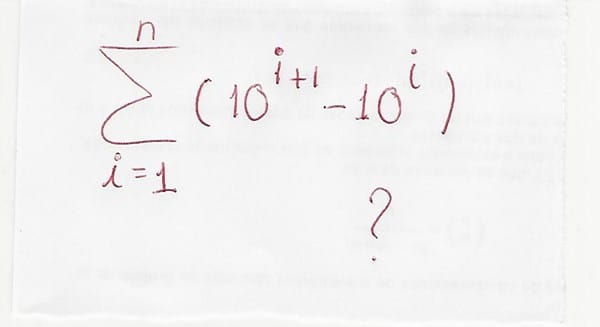 n
∑ (10^{i+1} - 10^{i})
i = 1
?